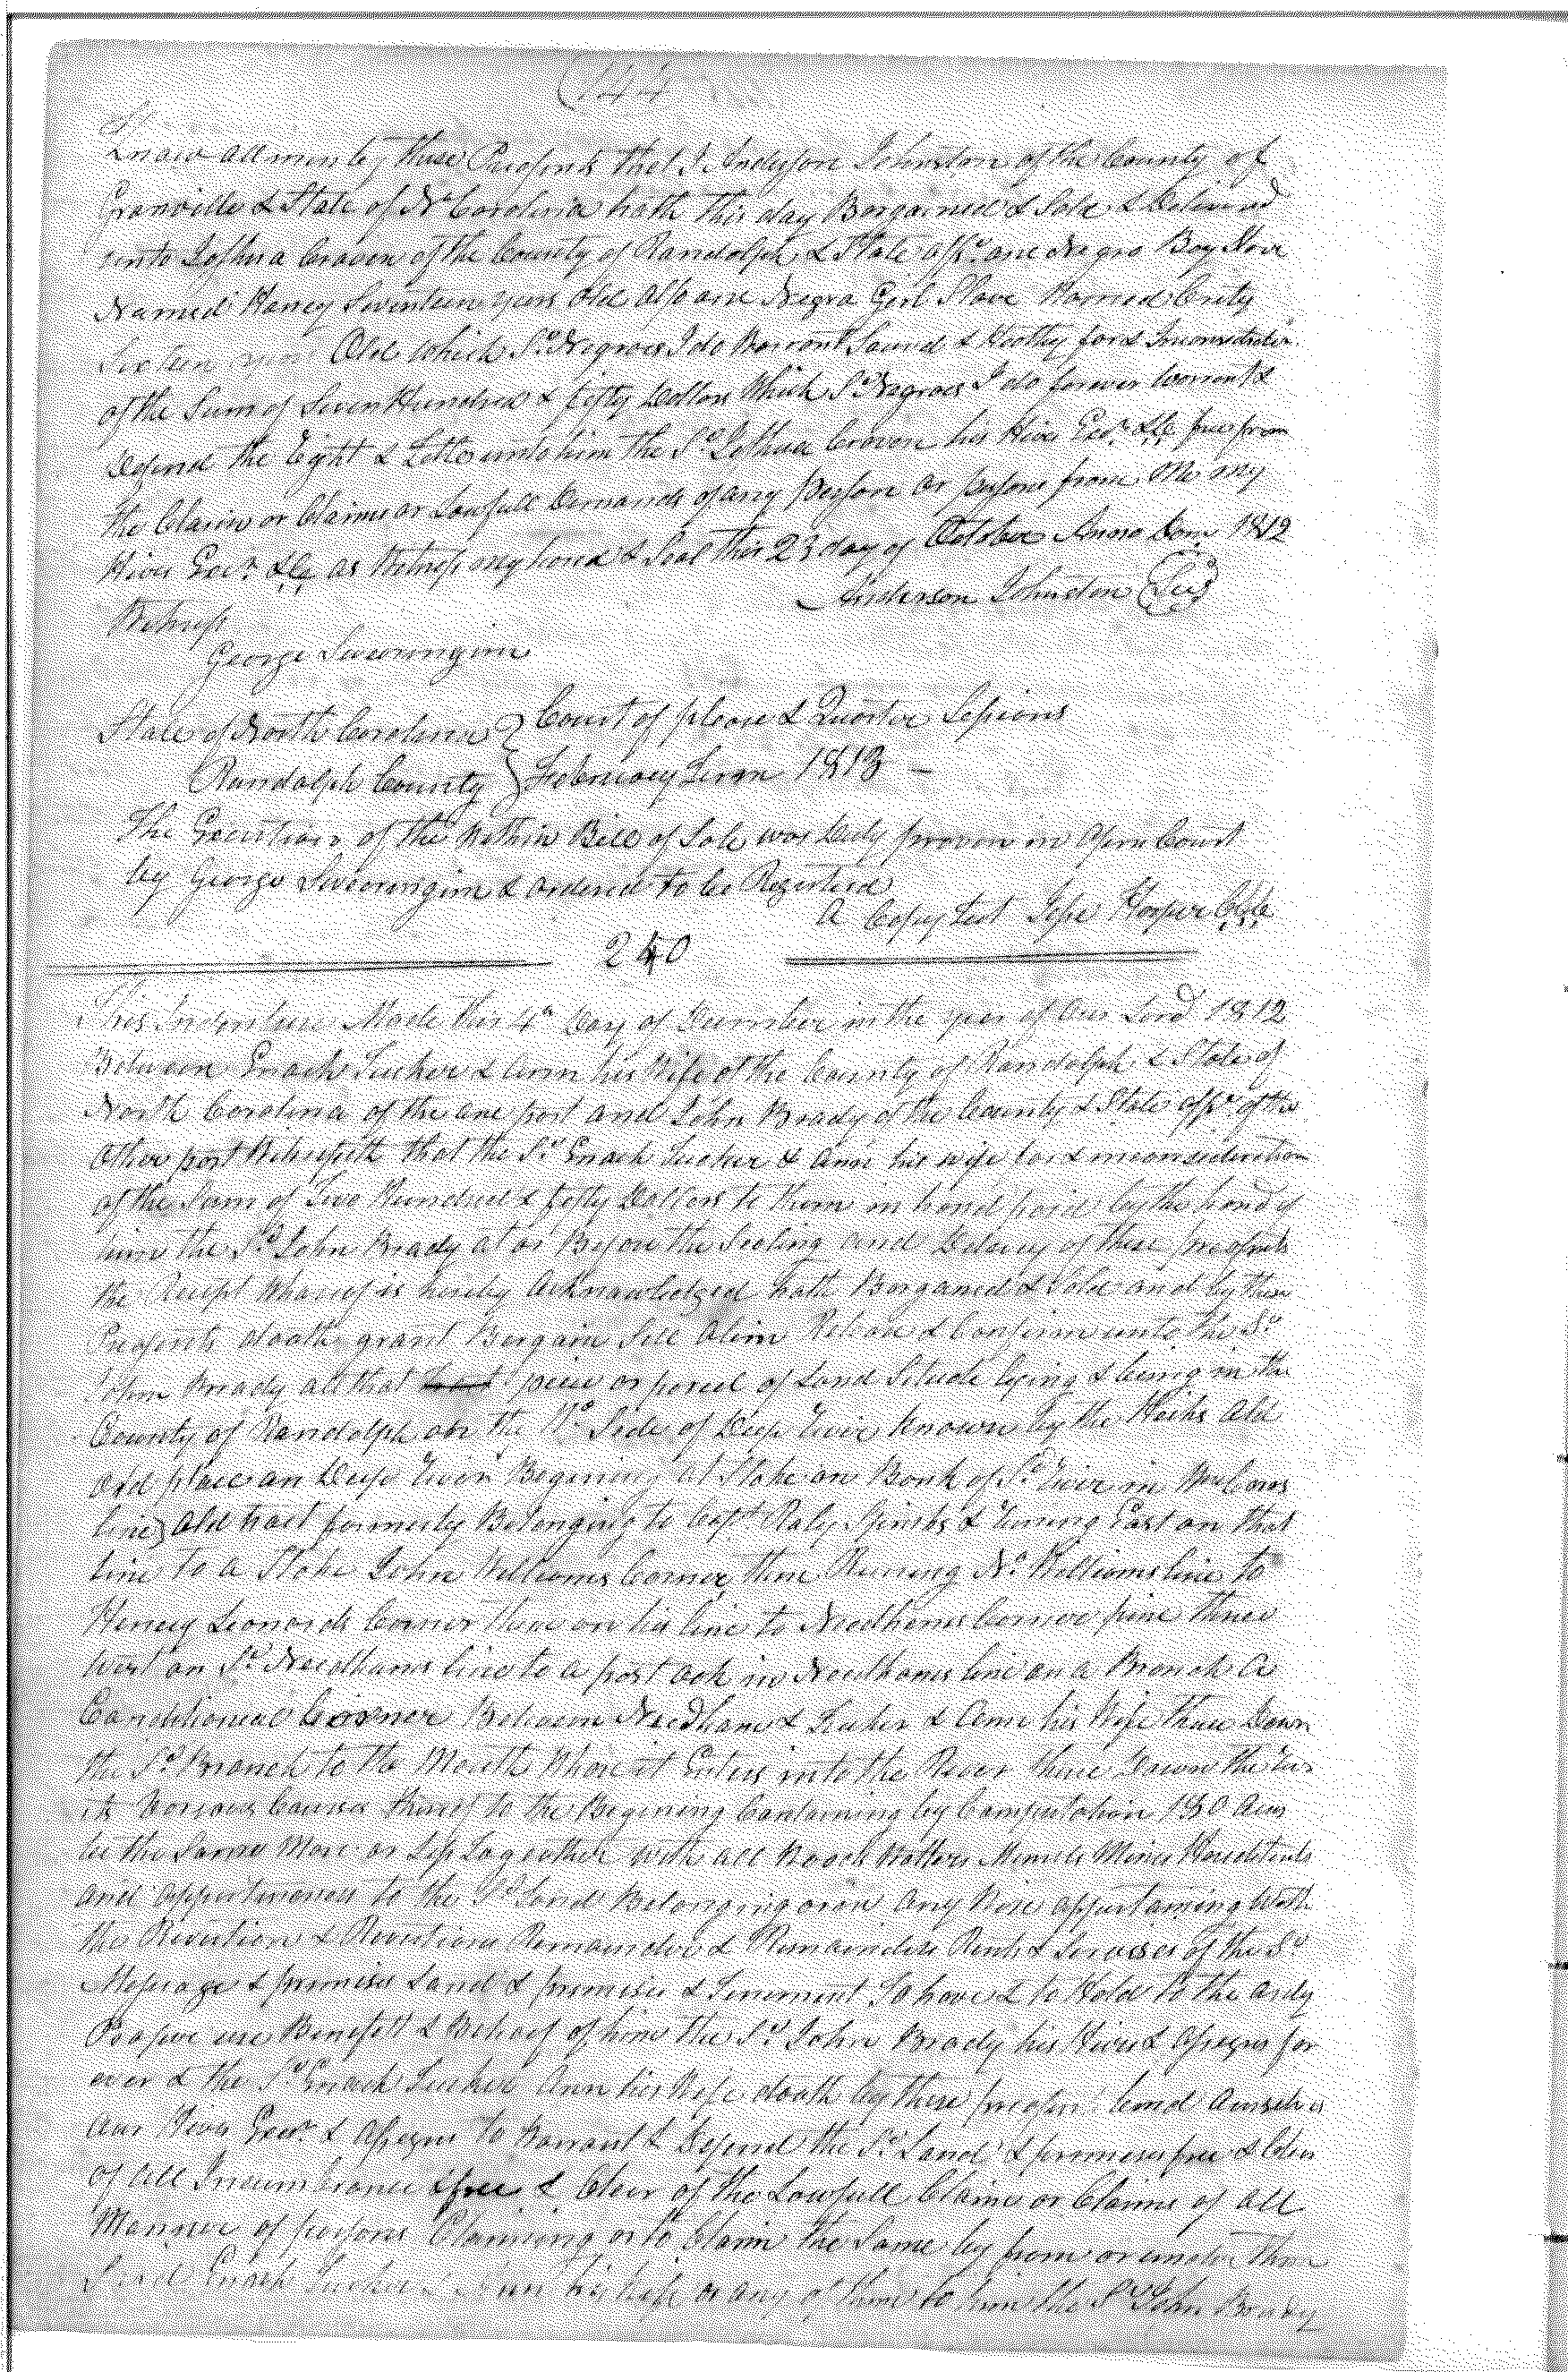 144
Know all men by these Presents that I Anderson Johnston of the County of
Granville & State of No Carolina hath this day Bargained & Sold & Delivered
unto Joshua Craven of the County of Randolph & State affsd. one Negro Boy Slave
Named Haney Seventeen years Old also one Negro Girl Slave Named Crity
Old which Sd Negroes I do Warrant Sound & Healthy for & Inconsideration
of the Sum of Seven Hundred & fifty Dollars Which Sd Negroes I do forever Warrent &
Defend the Right & Title unto him the Sd Joshua Craven his Hires Exrs. &c free from
the Claim or Claims or Lawfull Demands of any Person or persons from Me my
Hires Exrs. &c as Witness my hand & Seal this 23 day of October Anno Dom 1812
Anderson Johnston Seal
Witness
George Swearingim
State of North Carolina } Court of please & Quarter Sessions
Randolph County } February Term 1813
The Execution of the Within Bill of Sale was Duly proven in Open Court
by George Swearengim & ordered to be Regestered
A Copy Test Jesse Harper CC
240
This Indenture Made this 4th Day of December in the year of Our Lord 1812
Between Enoch Tucker & Ann his Wife of the County of Randolph & State of
North Carolina of the one part and John Brady of the County & State affsd of the
Other part Witnesseth that the Sd Enoch Tucker & Ann his wife for & inconsideration
of the Sum of Two Hundred & fifty Dollars to them in hand paid by the hand of
him the Sd John Brady at or Before the Sealing and Delivery of these presents
the Receipt Whareof is hereby Acknowledged hath Bargained & Sold and by these
Presents doath grant Bargain Sell Alien Release & Confirm unto the Sd
John Brady all that piece or parcel of Land Situate lying & being in the
County of Randolph on the No Side of Deep River known by the Old
old place on Deep River Begining at Stake on Bank of Sd River in
line old tract formerly Belonging to Capt Raly Spinks & runing East on that
line to a Stake John Williams Corner then Runing No Williams line to
Henery Leonards Corner thence on his line to Needhams Corner pine thence
West on Sd Needhams line to a post oak in Needhams line on a Branch a
Conditional Corner Between Needham & Tucker & Ann his Wife thence Down
the Sd Branch to the Mouth Whare it Enters into the River thence Down the
its Various Courses thareof to the Begining Containing by Computation 130 Acres
be the Same More or Less Together with all Woods Watters Minerls Mines
and appurtinances to the Sd Land Belonging or in Any Wise appertaining With
the Revertion & Revertions Remainder & Remainders Rents & Services of the Sd
Messuage & premises Land & premises & Tenement To have & to Hold to the only
Proper use Benefitt & Behoof of him the Sd John Brady his Hires & Assigns for
ever & the Sd Enoch Tucker Ann his Wife doath by these presents bind ourselves
our Hires Exrs & Assigns to Warrant & Defend the Sd Land & premises free & Clear
of all Incumbrance free & Clear of the Lawfull Claim or Claims of all
Manner of persons Claiming or to Claim the Same by from or under them
Said Enoch Tucker & Ann his Wife or any of them to him the Sd John Brady